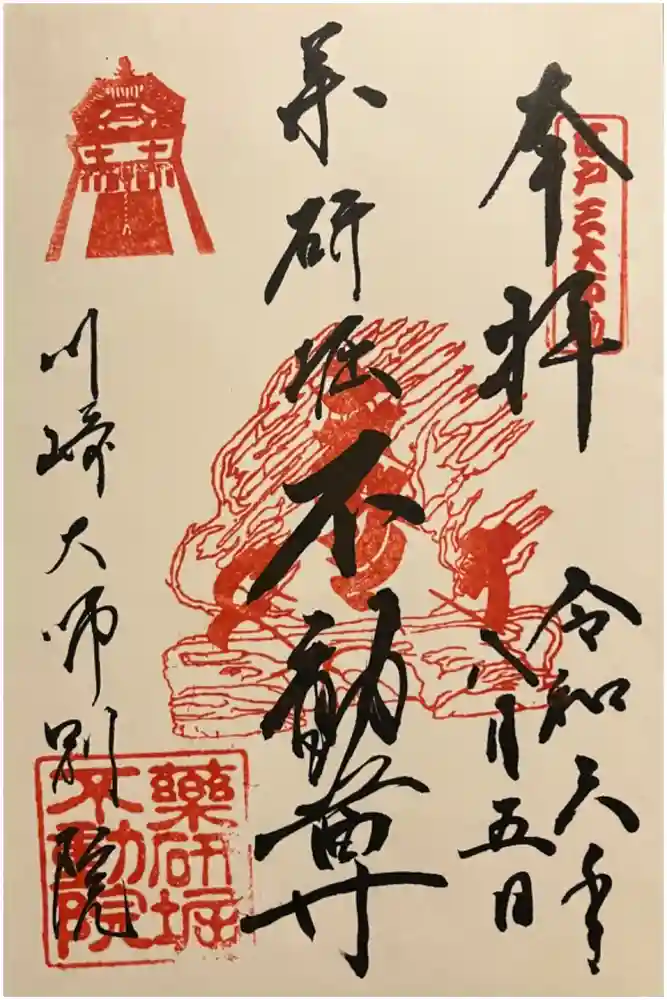 奉拝
江戸三大不動
令和六年
八月五日
薬研堀不動尊
川崎大師別院
薬研堀
不動院